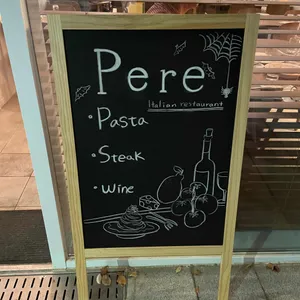 Pere
Italian restaurant
• Pasta
• Steak
• Wine